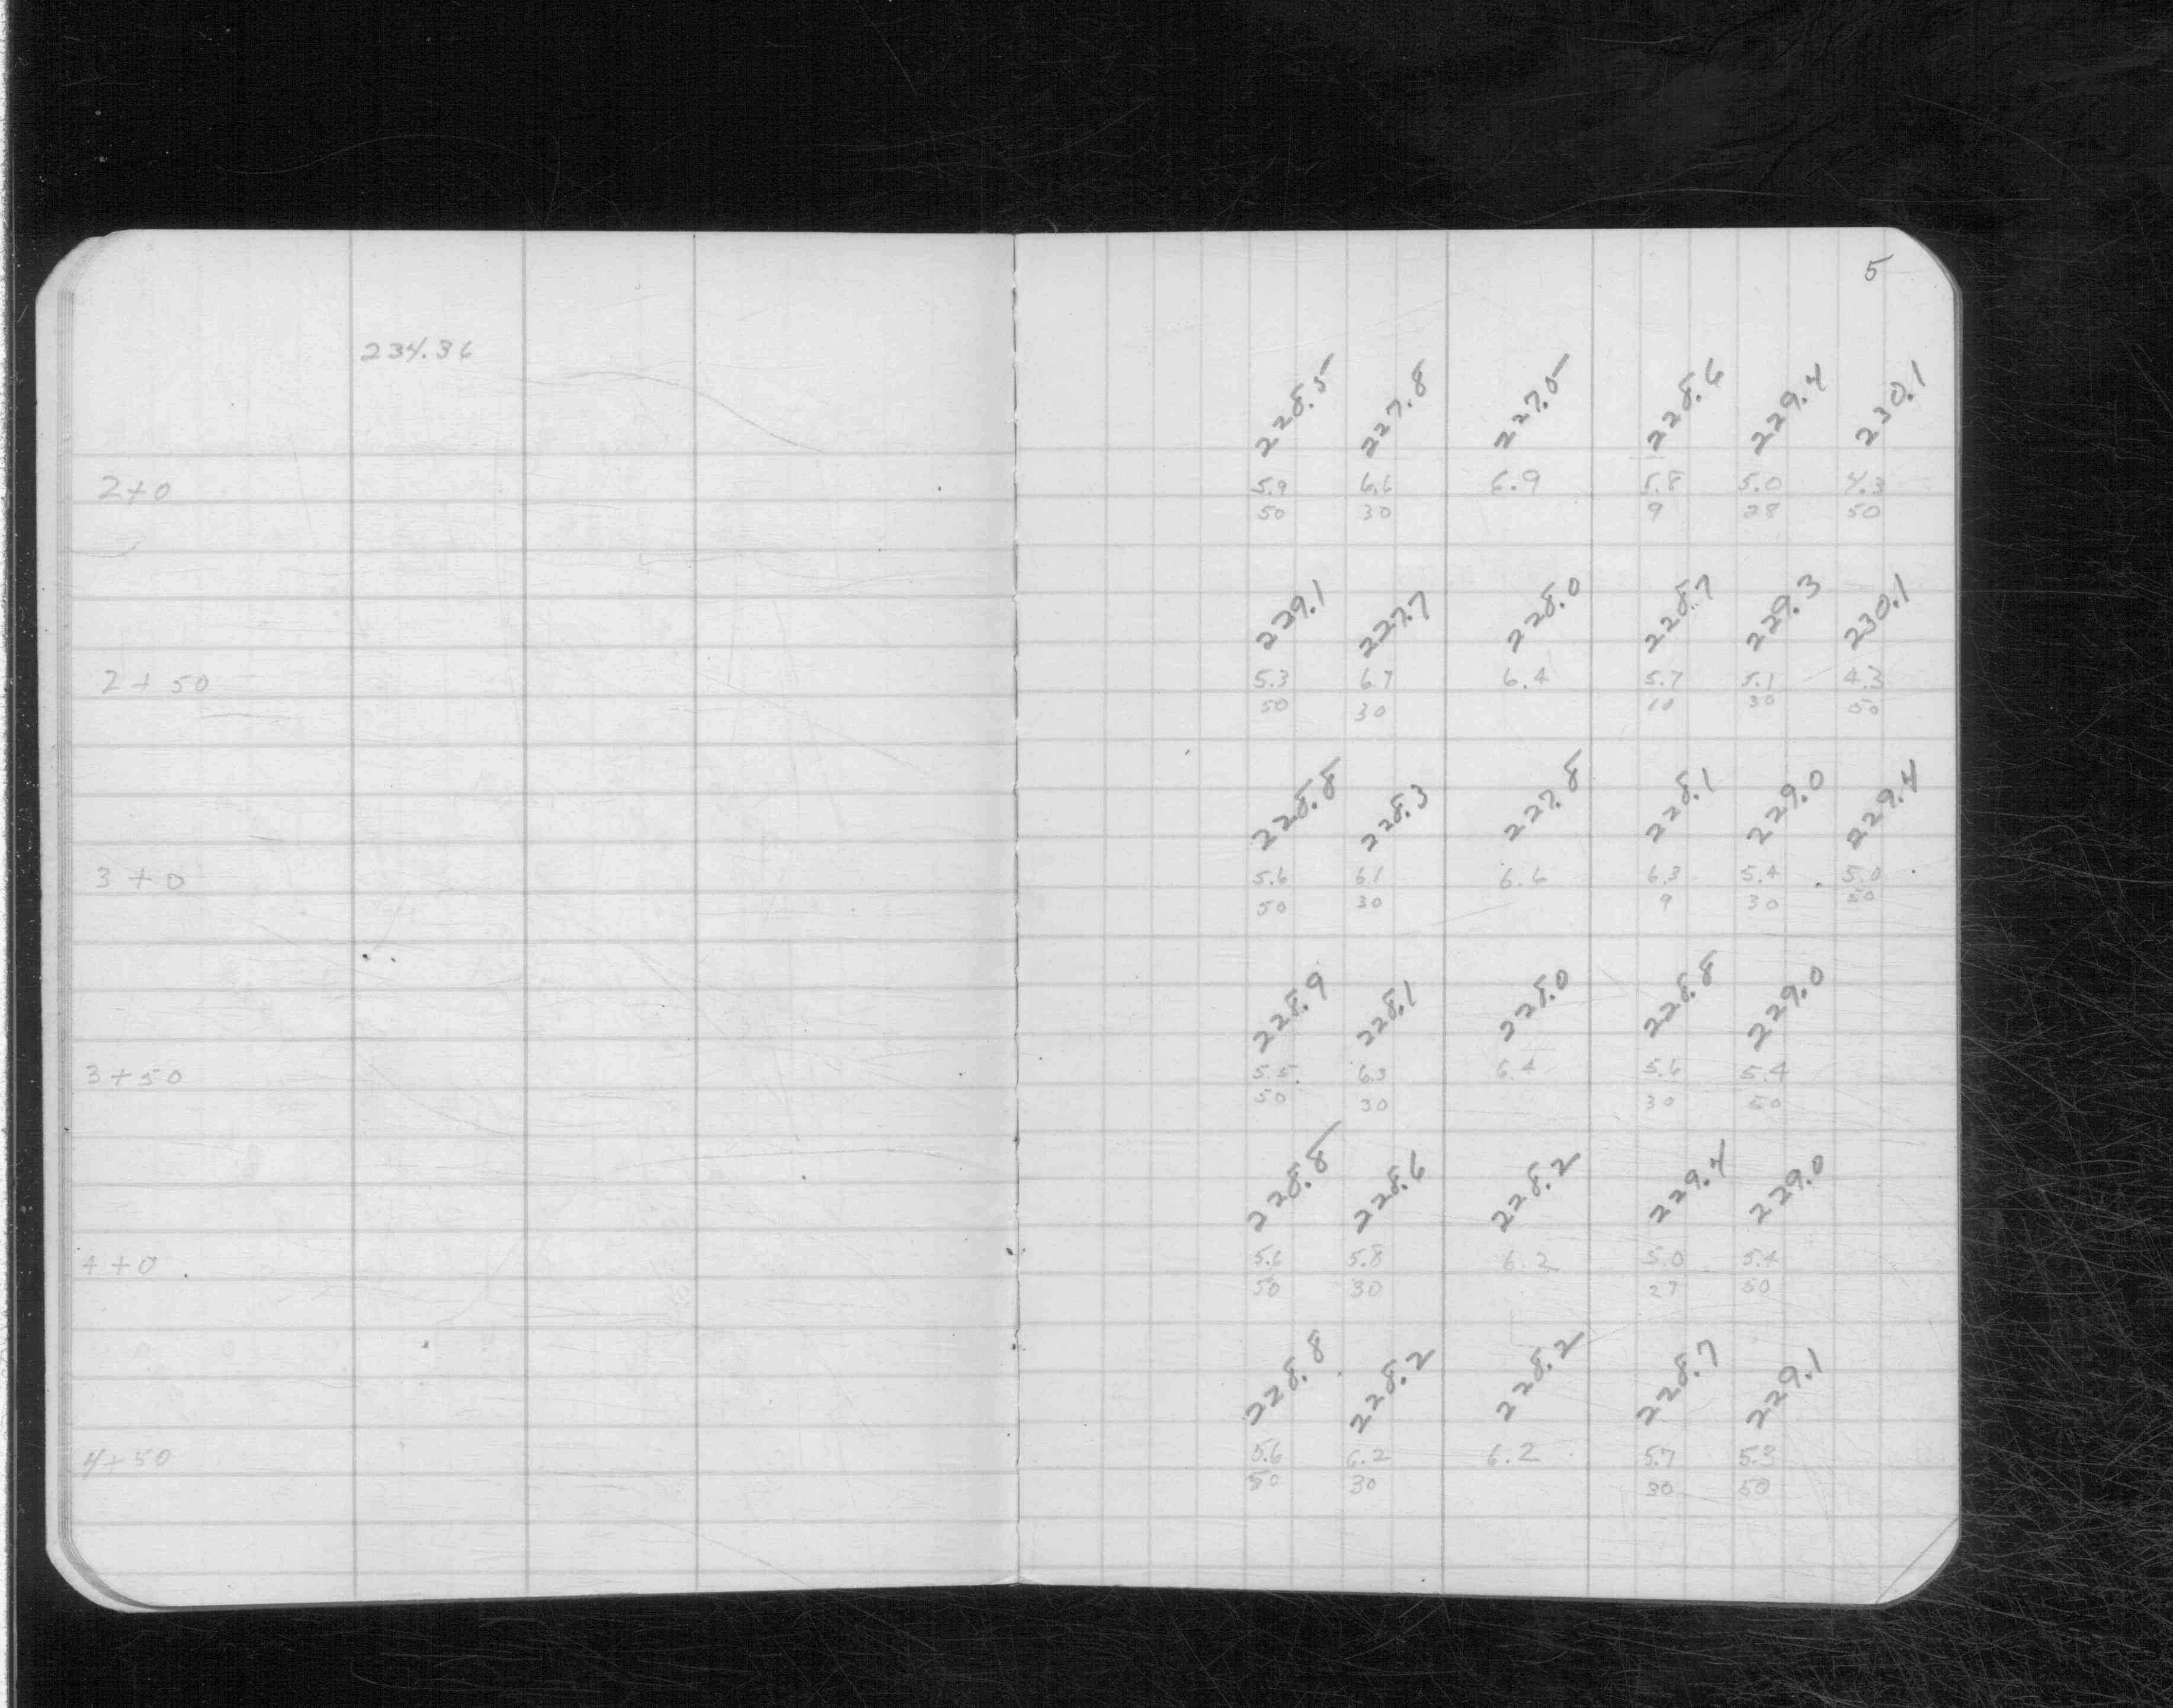 5
234.36
228.5 227.8 227.5 228.6 229.4 230.1
2+0 5.9 6.6 6.9 5.8 5.0 4.3
50 30 9 28 50
229.1 227.7 228.0 228.7 229.3 230.1
2+50 5.3 6.7 6.4 5.7 5.1 4.3
50 30 10 30 50
228.8 228.3 227.8 228.1 229.0 229.4
3+0 5.6 6.1 6.6 6.3 5.4 5.0
50 30 9 30 50
228.9 228.1 228.0 228.8 229.0
3+50 5.5 6.3 6.4 5.6 5.4
50 30 30 50
228.8 228.6 228.2 229.4 229.0
4+0 5.6 5.8 6.2 5.0 5.4
50 30 27 50
228.8 228.2 228.2 228.7 229.1
4+50 5.6 6.2 6.2 5.7 5.3
50 30 30 50